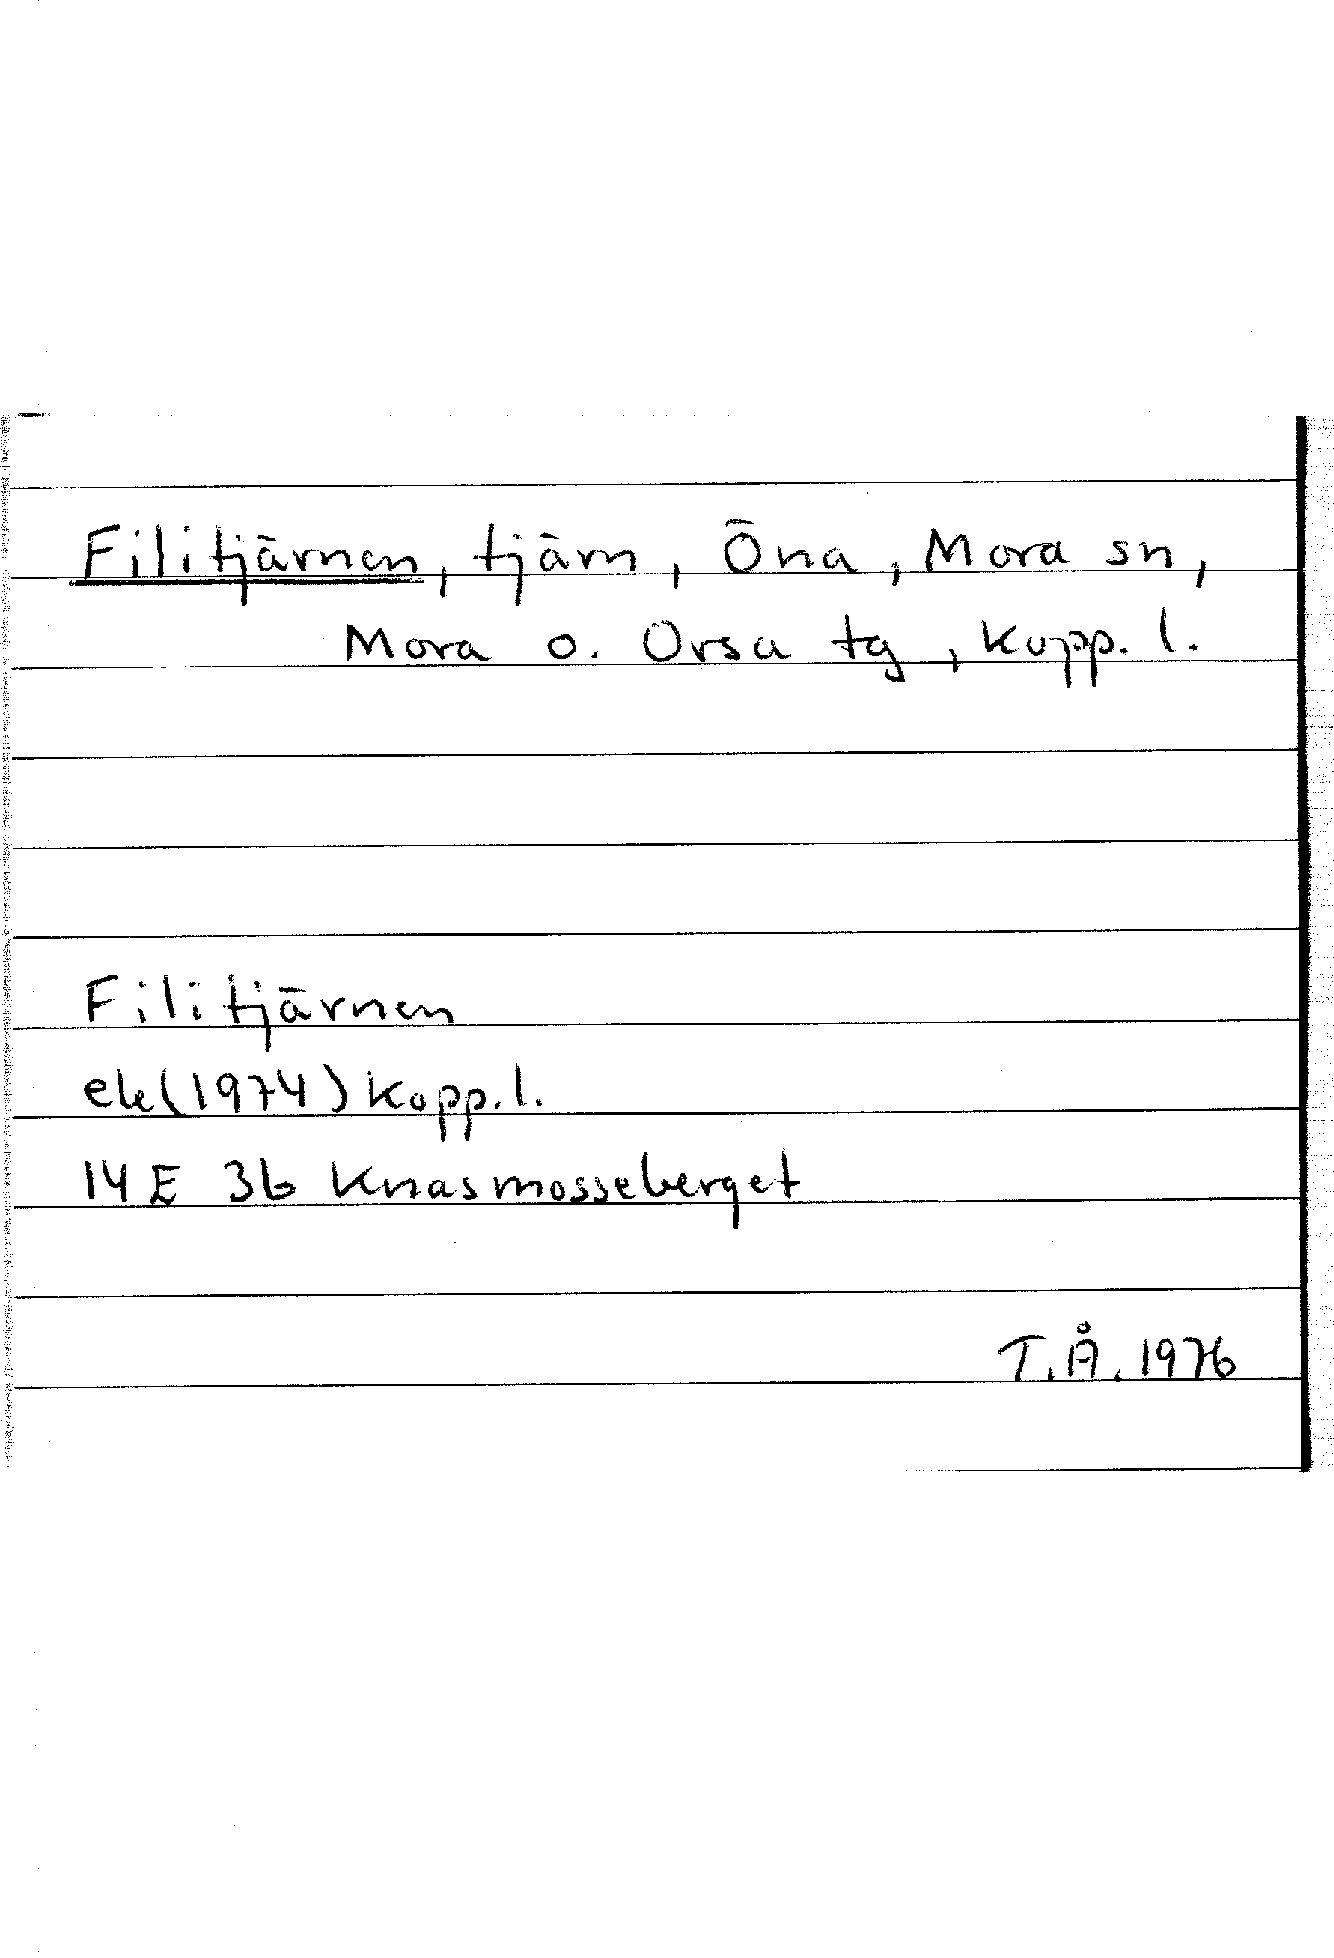 Filitjärnen, tjärn, Öna, Mora sn,
Mora o. Orsa tg, Kopp. l.
Filitjärnen
ek (1974) Kopp. l.
14 E 3b Knasmosseberget
T.Å. 1976